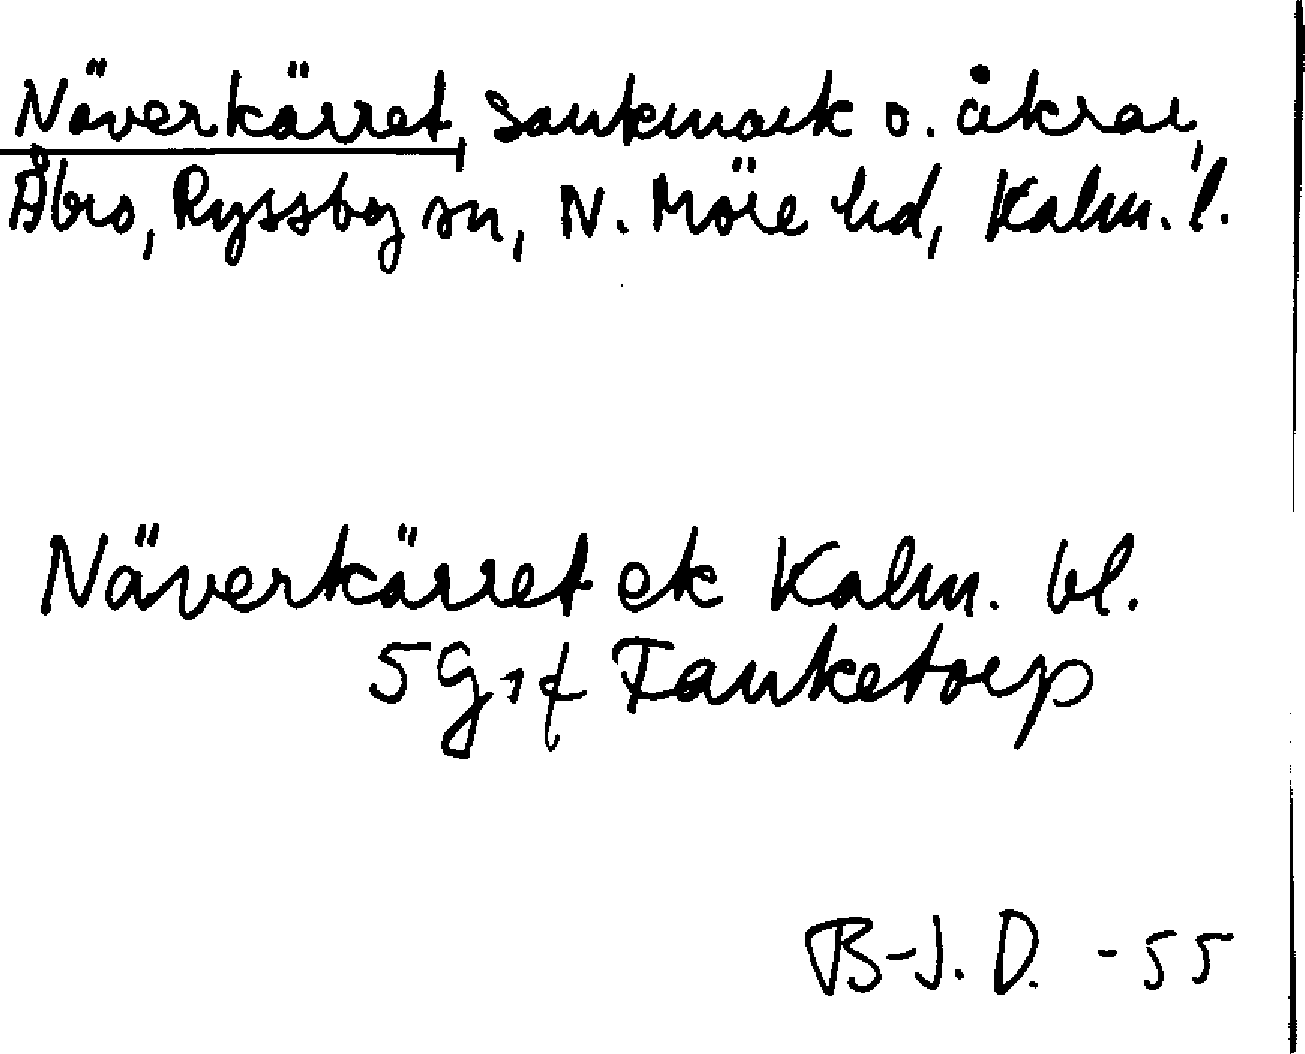 Näverkärret, sankmark o. åkrar,
Åbro, Ryssby sn, N. Möre hd, Kalm. l.
Näverkärret ek Kalm. bl.
5 G 1 f Fanketorp
B-J. D. -55